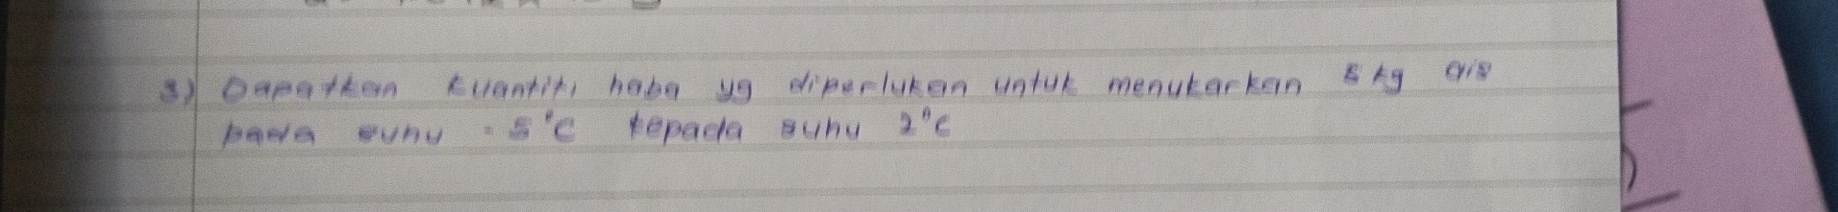 3) Dapatkan kuantiti haba yg diperlukan untuk menukarkan 5 kg ais
pada suhu -5°C kepada suhu 2°C